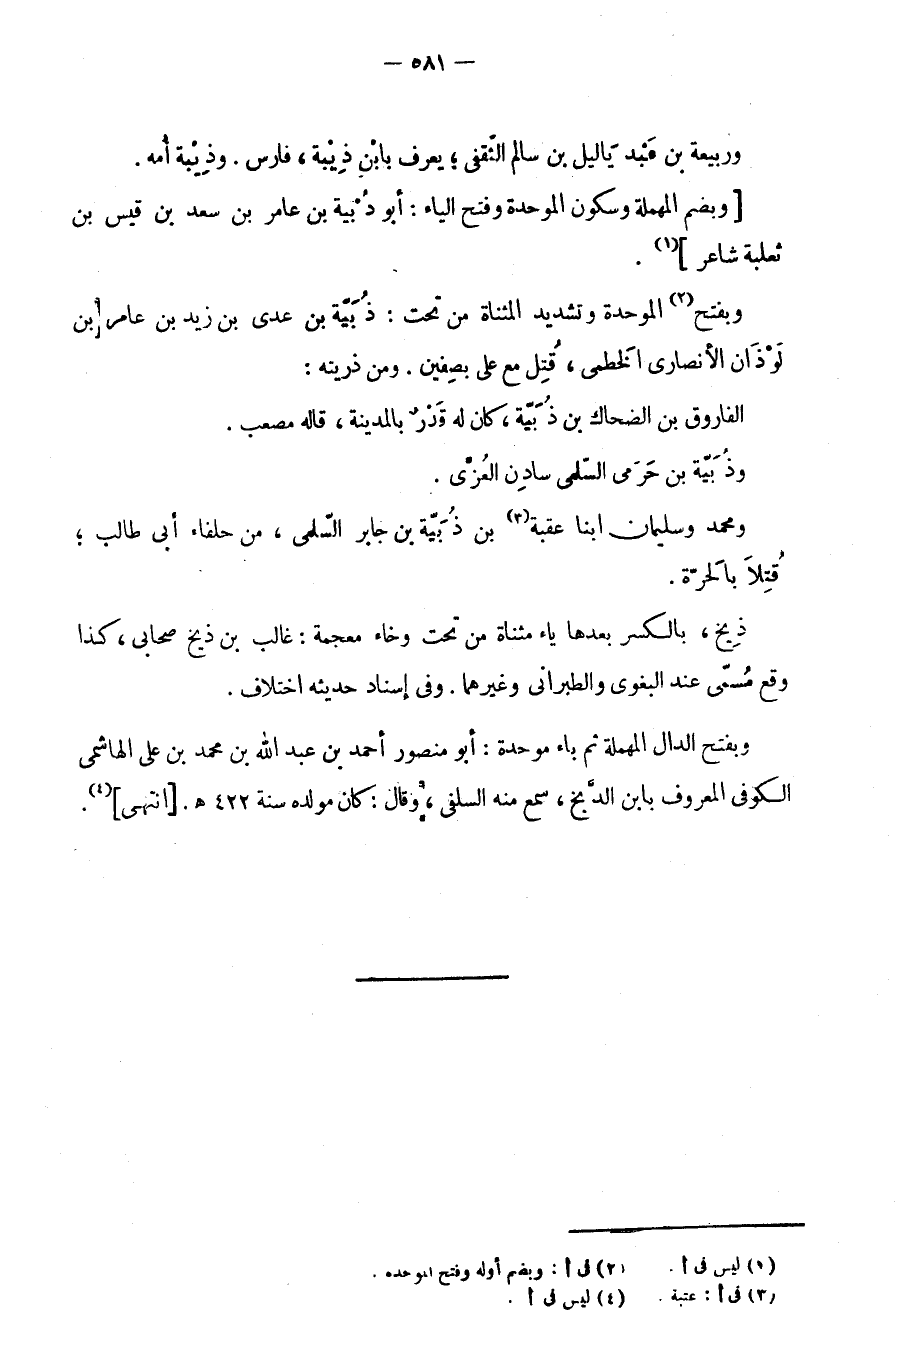 — ٥٨١ —
وربيعة بن عَبْد يَاليل بن سالم الثَّقفى ؛ يعرف بابْنِ ذِيْبة ، فارس . وذِيْبة أُمه .
[ وبضم المهملة وسكون الموحدة وفتح الياء : أبو دُبْية بن عامر بن سعد بن قيس بن
ثعلبة شاعر ](١) .
وبفتح(٢) الموحدة وتشديد المثناة من تحت : ذُبَيَّة بن عدى بن زيد بن عامر [بن
لَوْذَان الأنصارى الَخطمى ، قُتِل مع على بصِفين . ومن ذريته :
الفاروق بن الضحاك بن ذُبَيَّة ، كان له قَدْرٌ بالمدينة ، قاله مصعب .
وذُبَيَّة بن حَرَمى السّلمى سادِن العُزَّى .
ومحمد وسليمان ابنا عقبة(٣) بن ذُبَيَّة بن جابر السّلمى ، من حلفاء أبى طالب ؛
قُتِلاَ بالَحرّة .
ذِيخ ، بالكسر بعدها ياء مثناة من تحت وخاء معجمة : غالب بن ذيخ صحابى ، كذا
وقع مُسمّى عند البغوى والطبرانى وغيرهما . وفى إسناد حديثه اختلاف .
وبفتح الدال المهملة ثم باء موحدة : أبو منصور أحمد بن عبد الله بن محمد بن على الهاشمى
الكوفى المعروف بابن الدَّبخ ، سمع منه السلفى ، وقال : كان مولده سنة ٤٢٢ ه . [انتهى](٤).
(١) ليس فى أ . (٢) فى أ : وبضم أوله وفتح الموحده .
(٣) فى أ : عتبة . (٤) ليس فى أ .